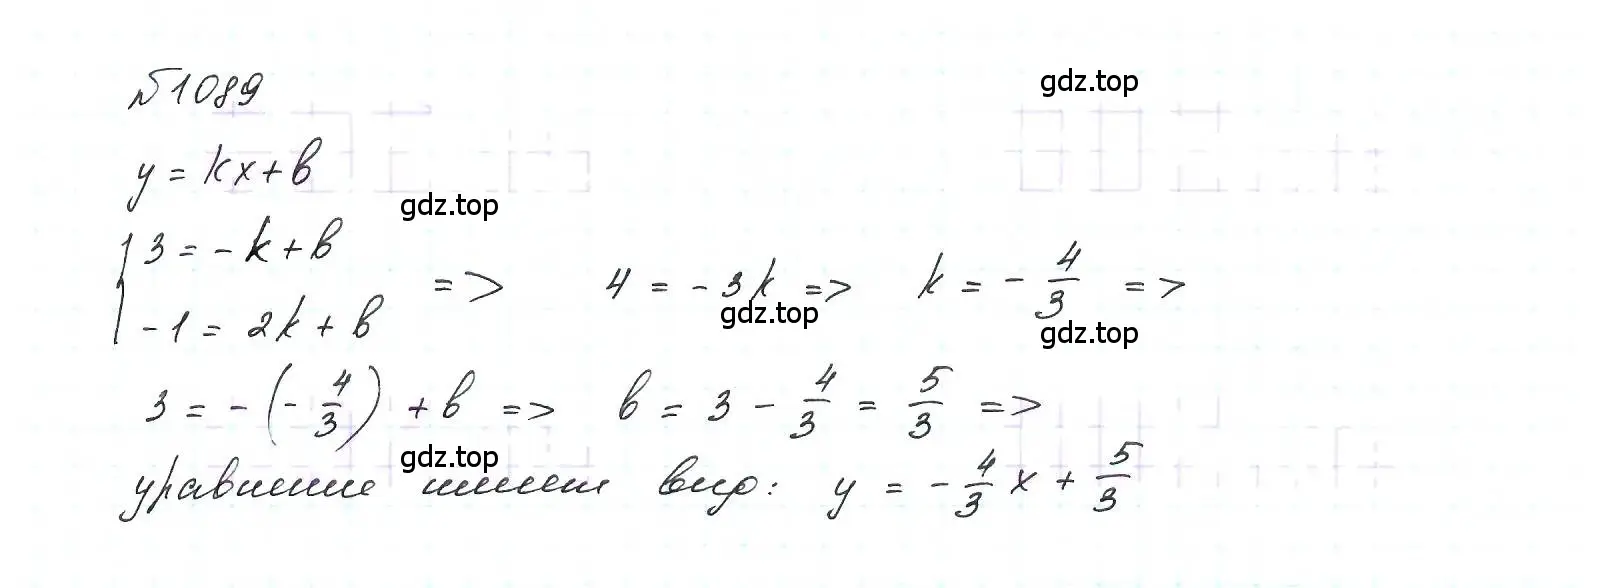 №1089
gdz.top
y = kx + b
gdz.top
{ 3 = - k + b
- 1 = 2k + b => 4 = - 3k => k = - 4/3 =>
gdz.top
gdz.top
3 = - (- 4/3) + b => b = 3 - 4/3 = 5/3 =>
gdz.top
уравнение имеет вид: y = - 4/3 x + 5/3